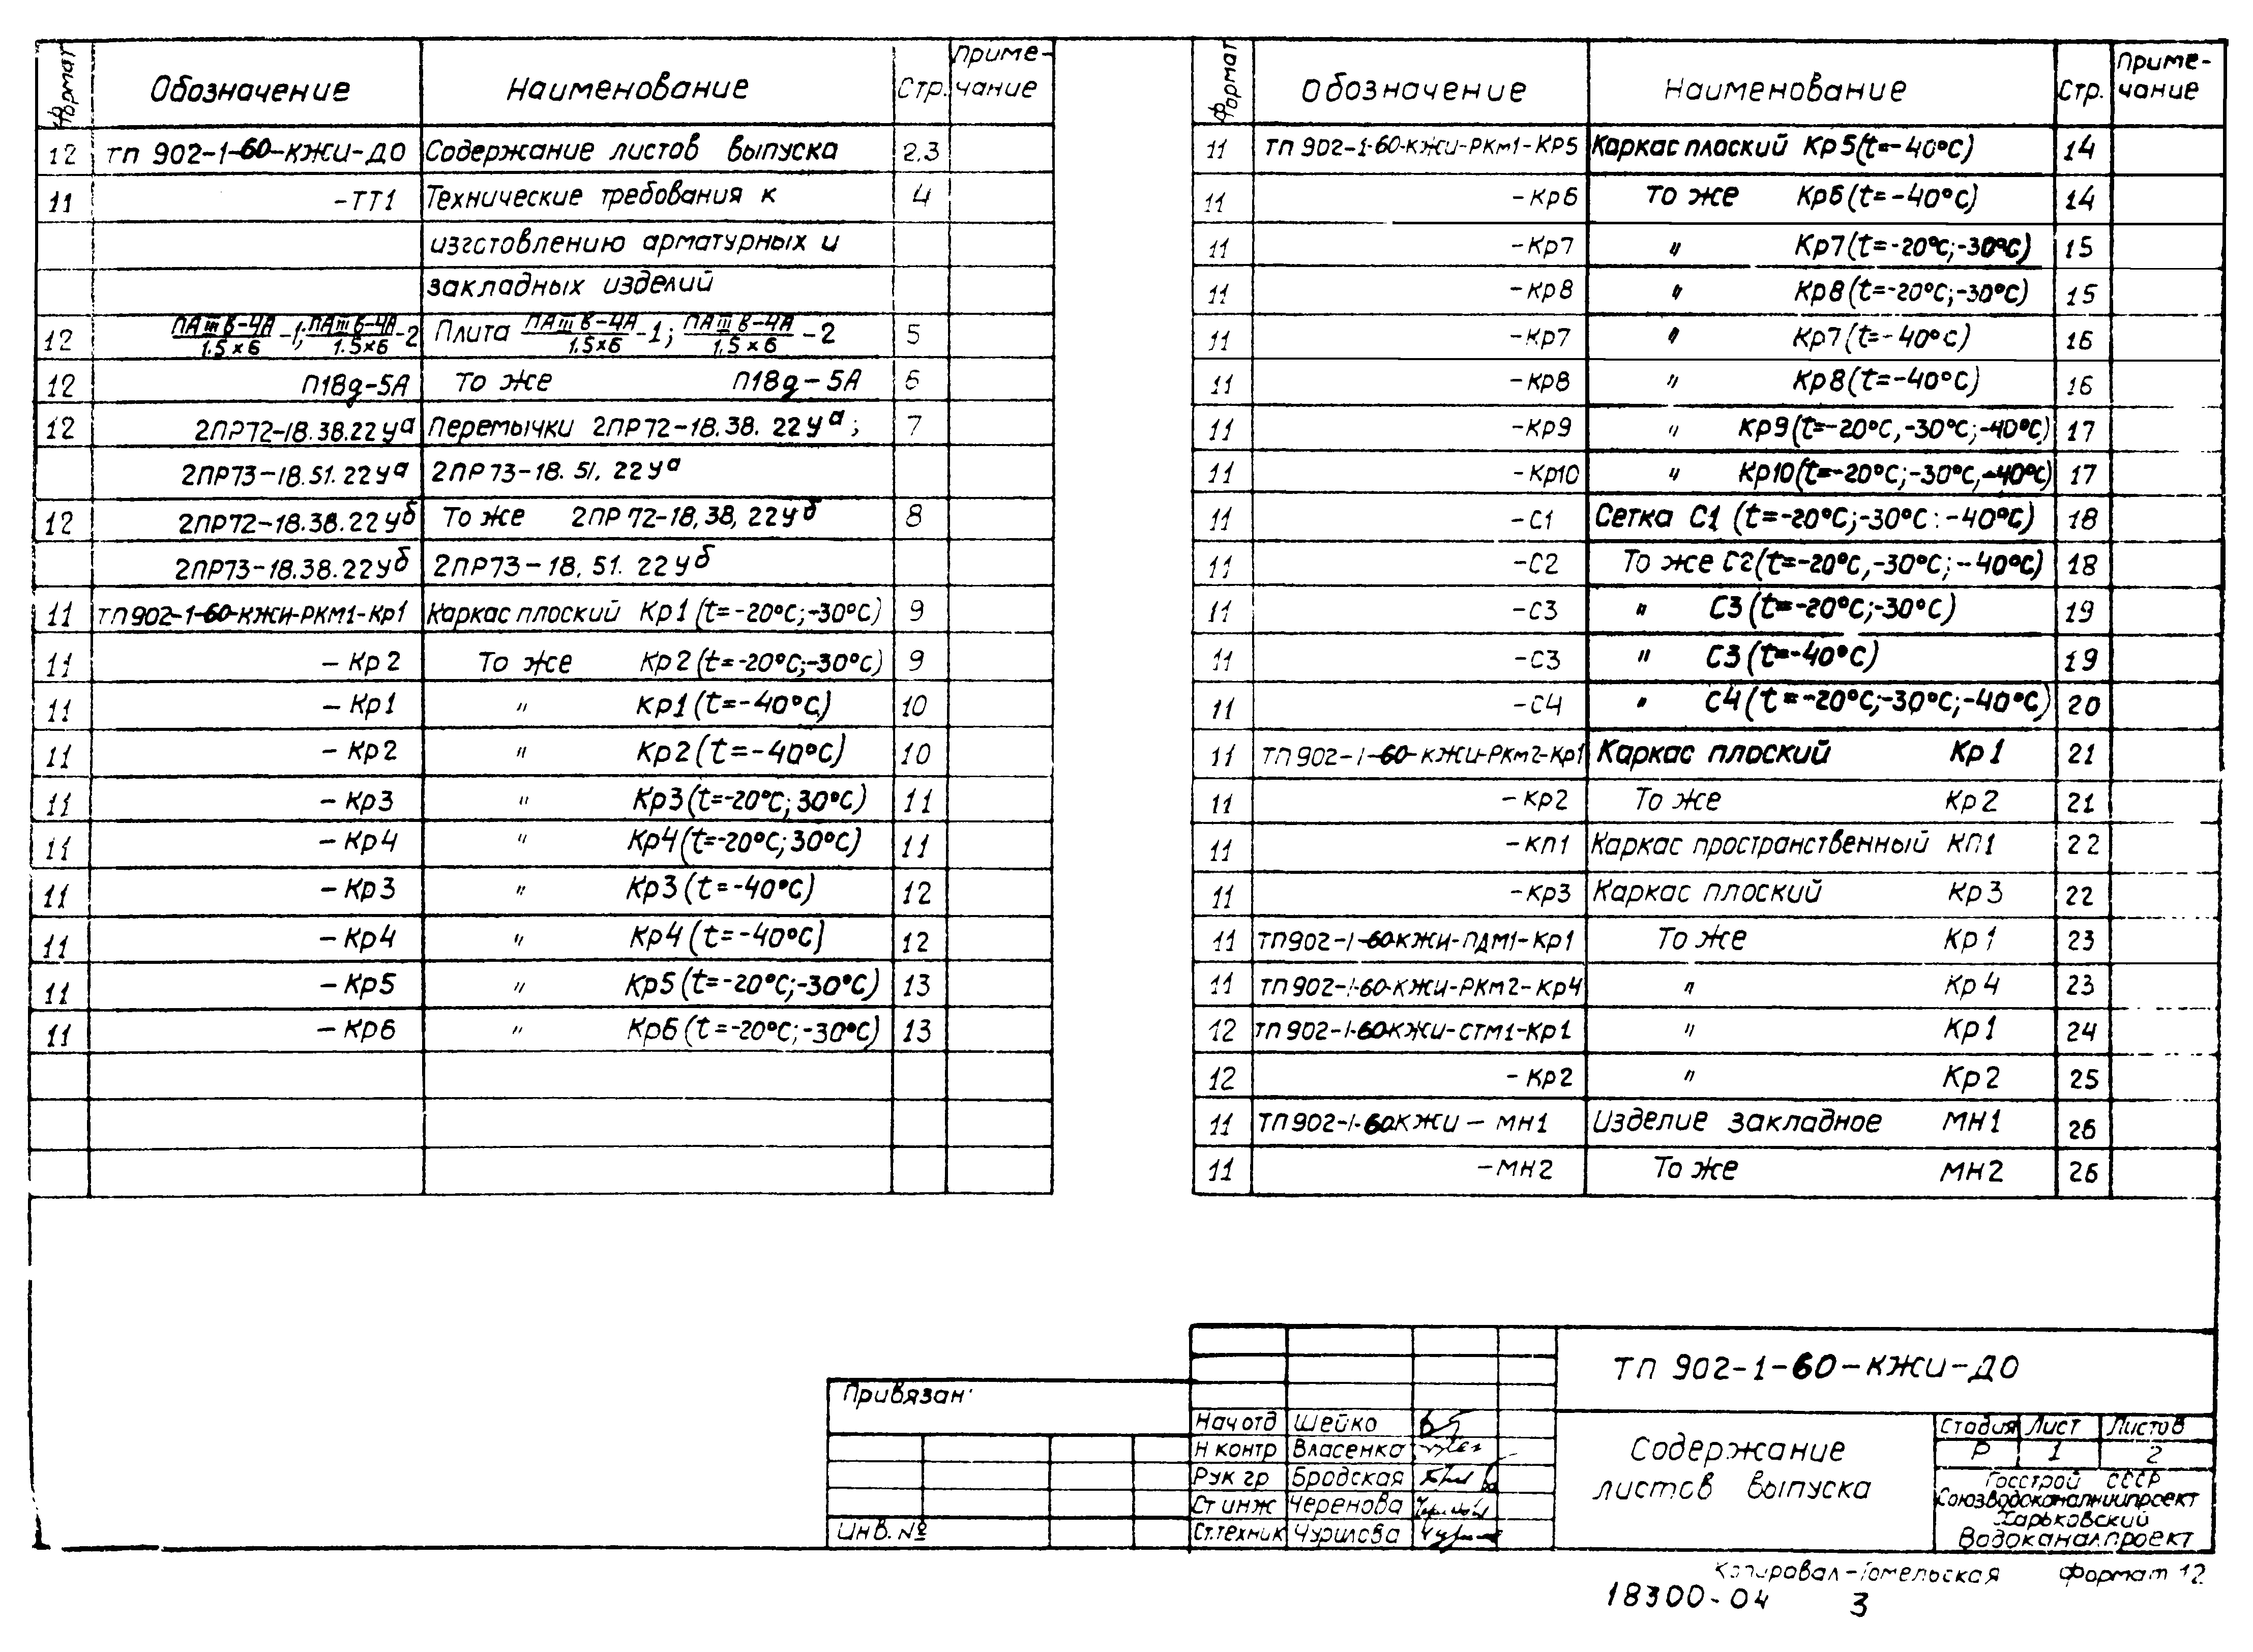 Формат Обозначение Наименование Стр. Приме-чание
12 ТП 902-1-60-КЖИ-ДО Содержание листов выпуска 2,3
11 -ТТ1 Технические требования к 4
изготовлению арматурных и
закладных изделий
12 ПАШв-4А/1.5×6-1; ПАШв-4А/1.5×6-2 Плита ПАШв-4А/1.5×6-1; ПАШв-4А/1.5×6-2 5
12 П18д-5А То же П18д-5А 6
12 2ПР72-18.38.22уа Перемычки 2ПР72-18.38.22уа; 7
2ПР73-18.51.22уа 2ПР73-18.51.22уа
12 2ПР72-18.38.22уб То же 2ПР72-18,38,22уб 8
2ПР73-18.38.22уб 2ПР73-18,51.22уб
11 ТП902-1-60-КЖИ-РКм1-Кр1 Каркас плоский Кр1 (t=-20°С;-30°С) 9
11 -Кр2 То же Кр2 (t=-20°С;-30°С) 9
11 -Кр1 " Кр1 (t=-40°С) 10
11 -Кр2 " Кр2 (t=-40°С) 10
11 -Кр3 " Кр3 (t=-20°С; 30°С) 11
11 -Кр4 " Кр4 (t=-20°С; 30°С) 11
11 -Кр3 " Кр3 (t=-40°С) 12
11 -Кр4 " Кр4 (t=-40°С) 12
11 -Кр5 " Кр5 (t=-20°С;-30°С) 13
11 -Кр6 " Кр6 (t=-20°С;-30°С) 13
Формат Обозначение Наименование Стр. Приме-чание
11 ТП 902-1-60-КЖИ-РКм1-КР5 Каркас плоский Кр5 (t=-40°С) 14
11 -Кр6 То же Кр6 (t=-40°С) 14
11 -Кр7 " Кр7 (t=-20°С;-30°С) 15
11 -Кр8 " Кр8 (t=-20°С;-30°С) 15
11 -Кр7 " Кр7 (t=-40°С) 16
11 -Кр8 " Кр8 (t=-40°С) 16
11 -Кр9 " Кр9 (t=-20°С,-30°С;-40°С) 17
11 -Кр10 " Кр10 (t=-20°С;-30°С,-40°С) 17
11 -С1 Сетка С1 (t=-20°С;-30°С:-40°С) 18
11 -С2 То же С2 (t=-20°С,-30°С;-40°С) 18
11 -С3 " С3 (t=-20°С;-30°С) 19
11 -С3 " С3 (t=-40°С) 19
11 -С4 " С4 (t=-20°С;-30°С;-40°С) 20
11 ТП 902-1-60-КЖИ-РКм2-Кр1 Каркас плоский Кр1 21
11 -Кр2 То же Кр2 21
11 -КП1 Каркас пространственный КП1 22
11 -Кр3 Каркас плоский Кр3 22
11 ТП902-1-60-КЖИ-ПДМ1-Кр1 То же Кр1 23
11 ТП902-1-60-КЖИ-РКм2-Кр4 " Кр4 23
12 ТП902-1-60-КЖИ-СТМ1-Кр1 " Кр1 24
12 -Кр2 " Кр2 25
11 ТП902-1-60КЖИ-МН1 Изделие закладное МН1 26
11 -МН2 То же МН2 26
Привязан:
Инв. №
ТП 902-1-60-КЖИ-ДО
Нач отд Шейко
Н контр Власенко
Рук гр Бродская
Ст инж Черенова
Ст.техник Чурилова
Содержание
листов выпуска
Стадия Лист Листов
Р 1 2
Госстрой СССР
Союзводоканалниипроект
Харьковский
Водоканалпроект
Копировал-Гомельская Формат 12
18300-04 3